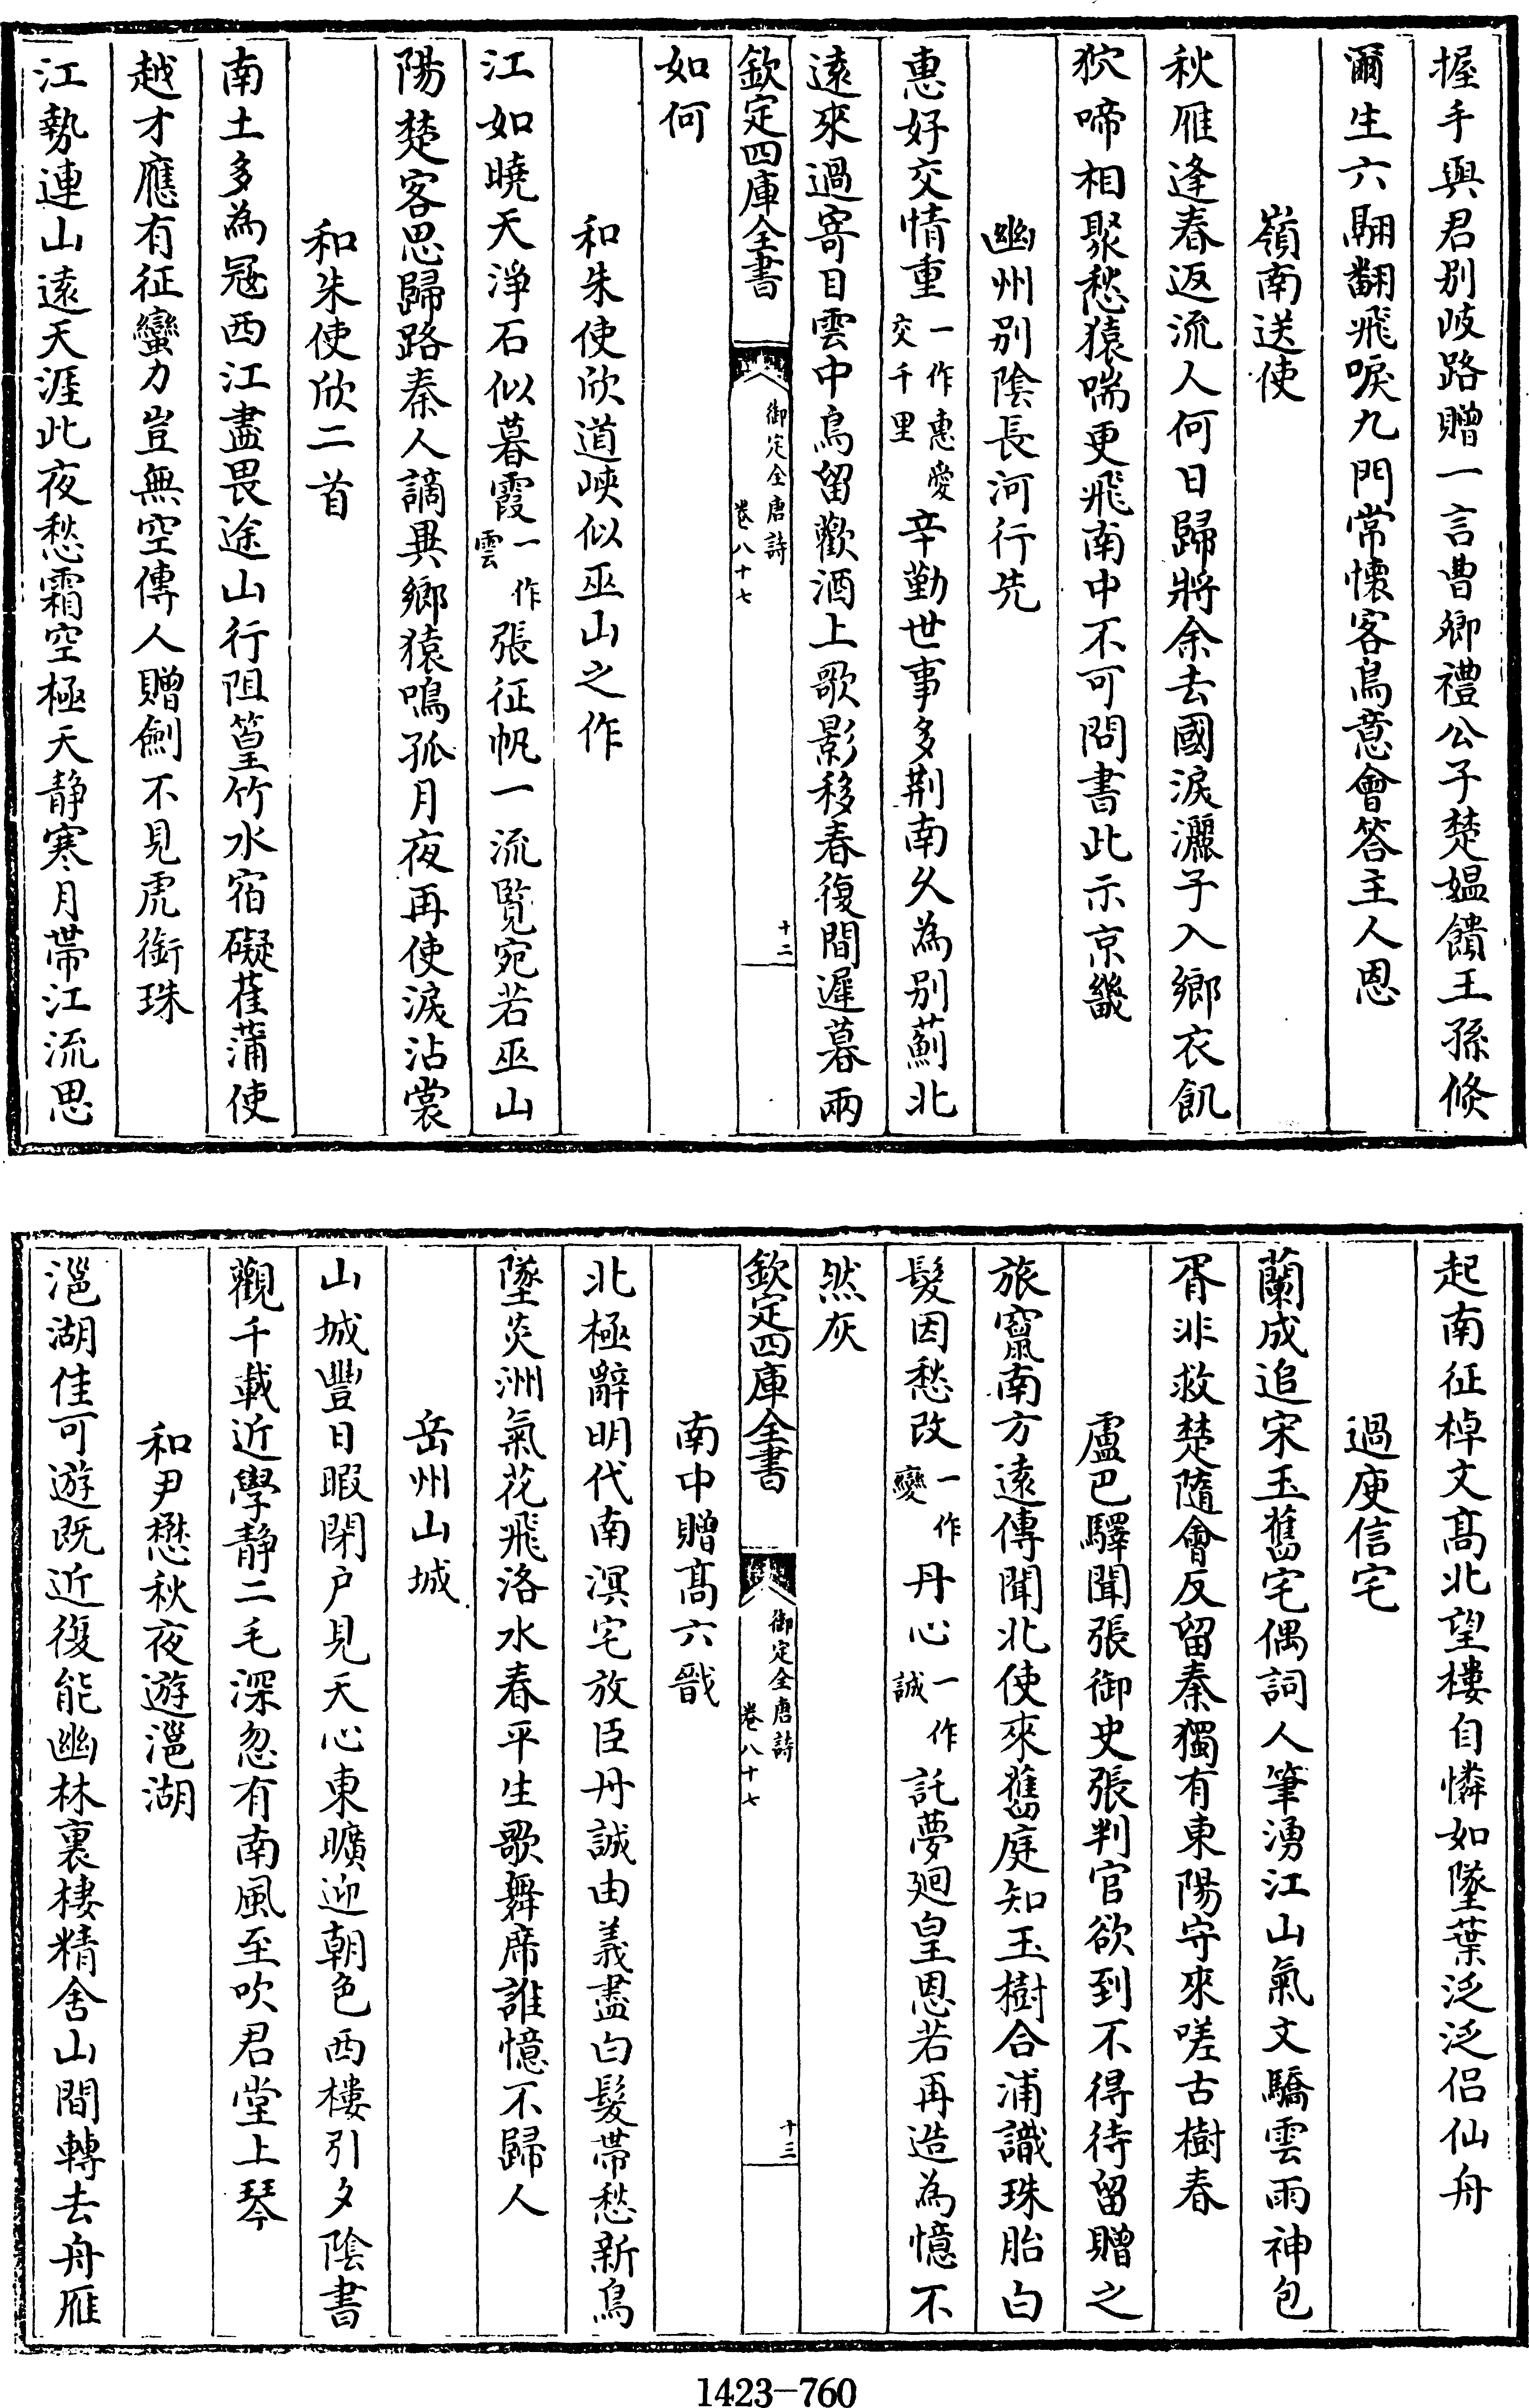 握手與君别岐路贈一言曹卿禮公子楚媪饋王孫倐
爾生六翮翻飛唳九門常懷客鳥意會答主人恩
嶺南送使
秋雁逢春返流人何日歸將余去國淚灑子入鄉衣飢
狖啼相聚愁猿喘更飛南中不可問書此示京畿
幽州别陰長河行先
惠好交情重一作惠愛交千里辛勤世事多荆南久為别薊北
遠來過寄目雲中鳥留歡酒上歌影移春復間遲暮兩
欽定四庫全書 御定全唐詩 卷八十七 十二
如何
和朱使欣道峽似巫山之作
江如曉天淨石似暮霞一作雲張征帆一流覧宛若巫山
陽楚客思歸路秦人謫異鄉猿鳴孤月夜再使淚沾裳
和朱使欣二首
南土多為冦西江盡畏途山行阻篁竹水宿礙萑蒲使
越才應有征蠻力豈無空傳人贈劍不見虎銜珠
江勢連山遠天涯此夜愁霜空極天静寒月帶江流思
起南征棹文髙北望樓自憐如墜葉泛泛侣仙舟
過庾信宅
蘭成追宋玉舊宅偶詞人筆湧江山氣文驕雲雨神包
胥非救楚隨會反留秦獨有東陽守來嗟古樹春
盧巴驛聞張御史張判官欲到不得待留贈之
旅竄南方遠傳聞北使來舊庭知玉樹合浦識珠胎白
髮因愁改一作變丹心一作誠託夢廻皇恩若再造為憶不
然灰
欽定四庫全書 御定全唐詩 卷八十七 十三
南中贈髙六戩
北極辭明代南溟宅放臣丹誠由義盡白髮帶愁新鳥
墜炎洲氣花飛洛水春平生歌舞席誰憶不歸人
岳州山城
山城豐日暇閉户見天心東曠迎朝色西樓引夕陰書
觀千載近學静二毛深忽有南風至吹君堂上琴
和尹懋秋夜遊㴩湖
㴩湖佳可遊既近復能幽林裏棲精舍山間轉去舟雁
1423-760